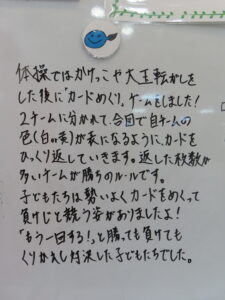 体操ではかけっこや大玉転がしを
した後に「カードめくり」ゲームをしました!
2チームに分かれて、合図で自チームの
色(白or黄)が表になるように、カードを
ひっくり返していきます。返した枚数が
多いチームが勝ちのルールです。
子どもたちは勢いよくカードをめくって
負けじと競う姿がありましたよ!
「もう一回する!」と勝っても負けても
くりかえし対決した子どもたちでした。